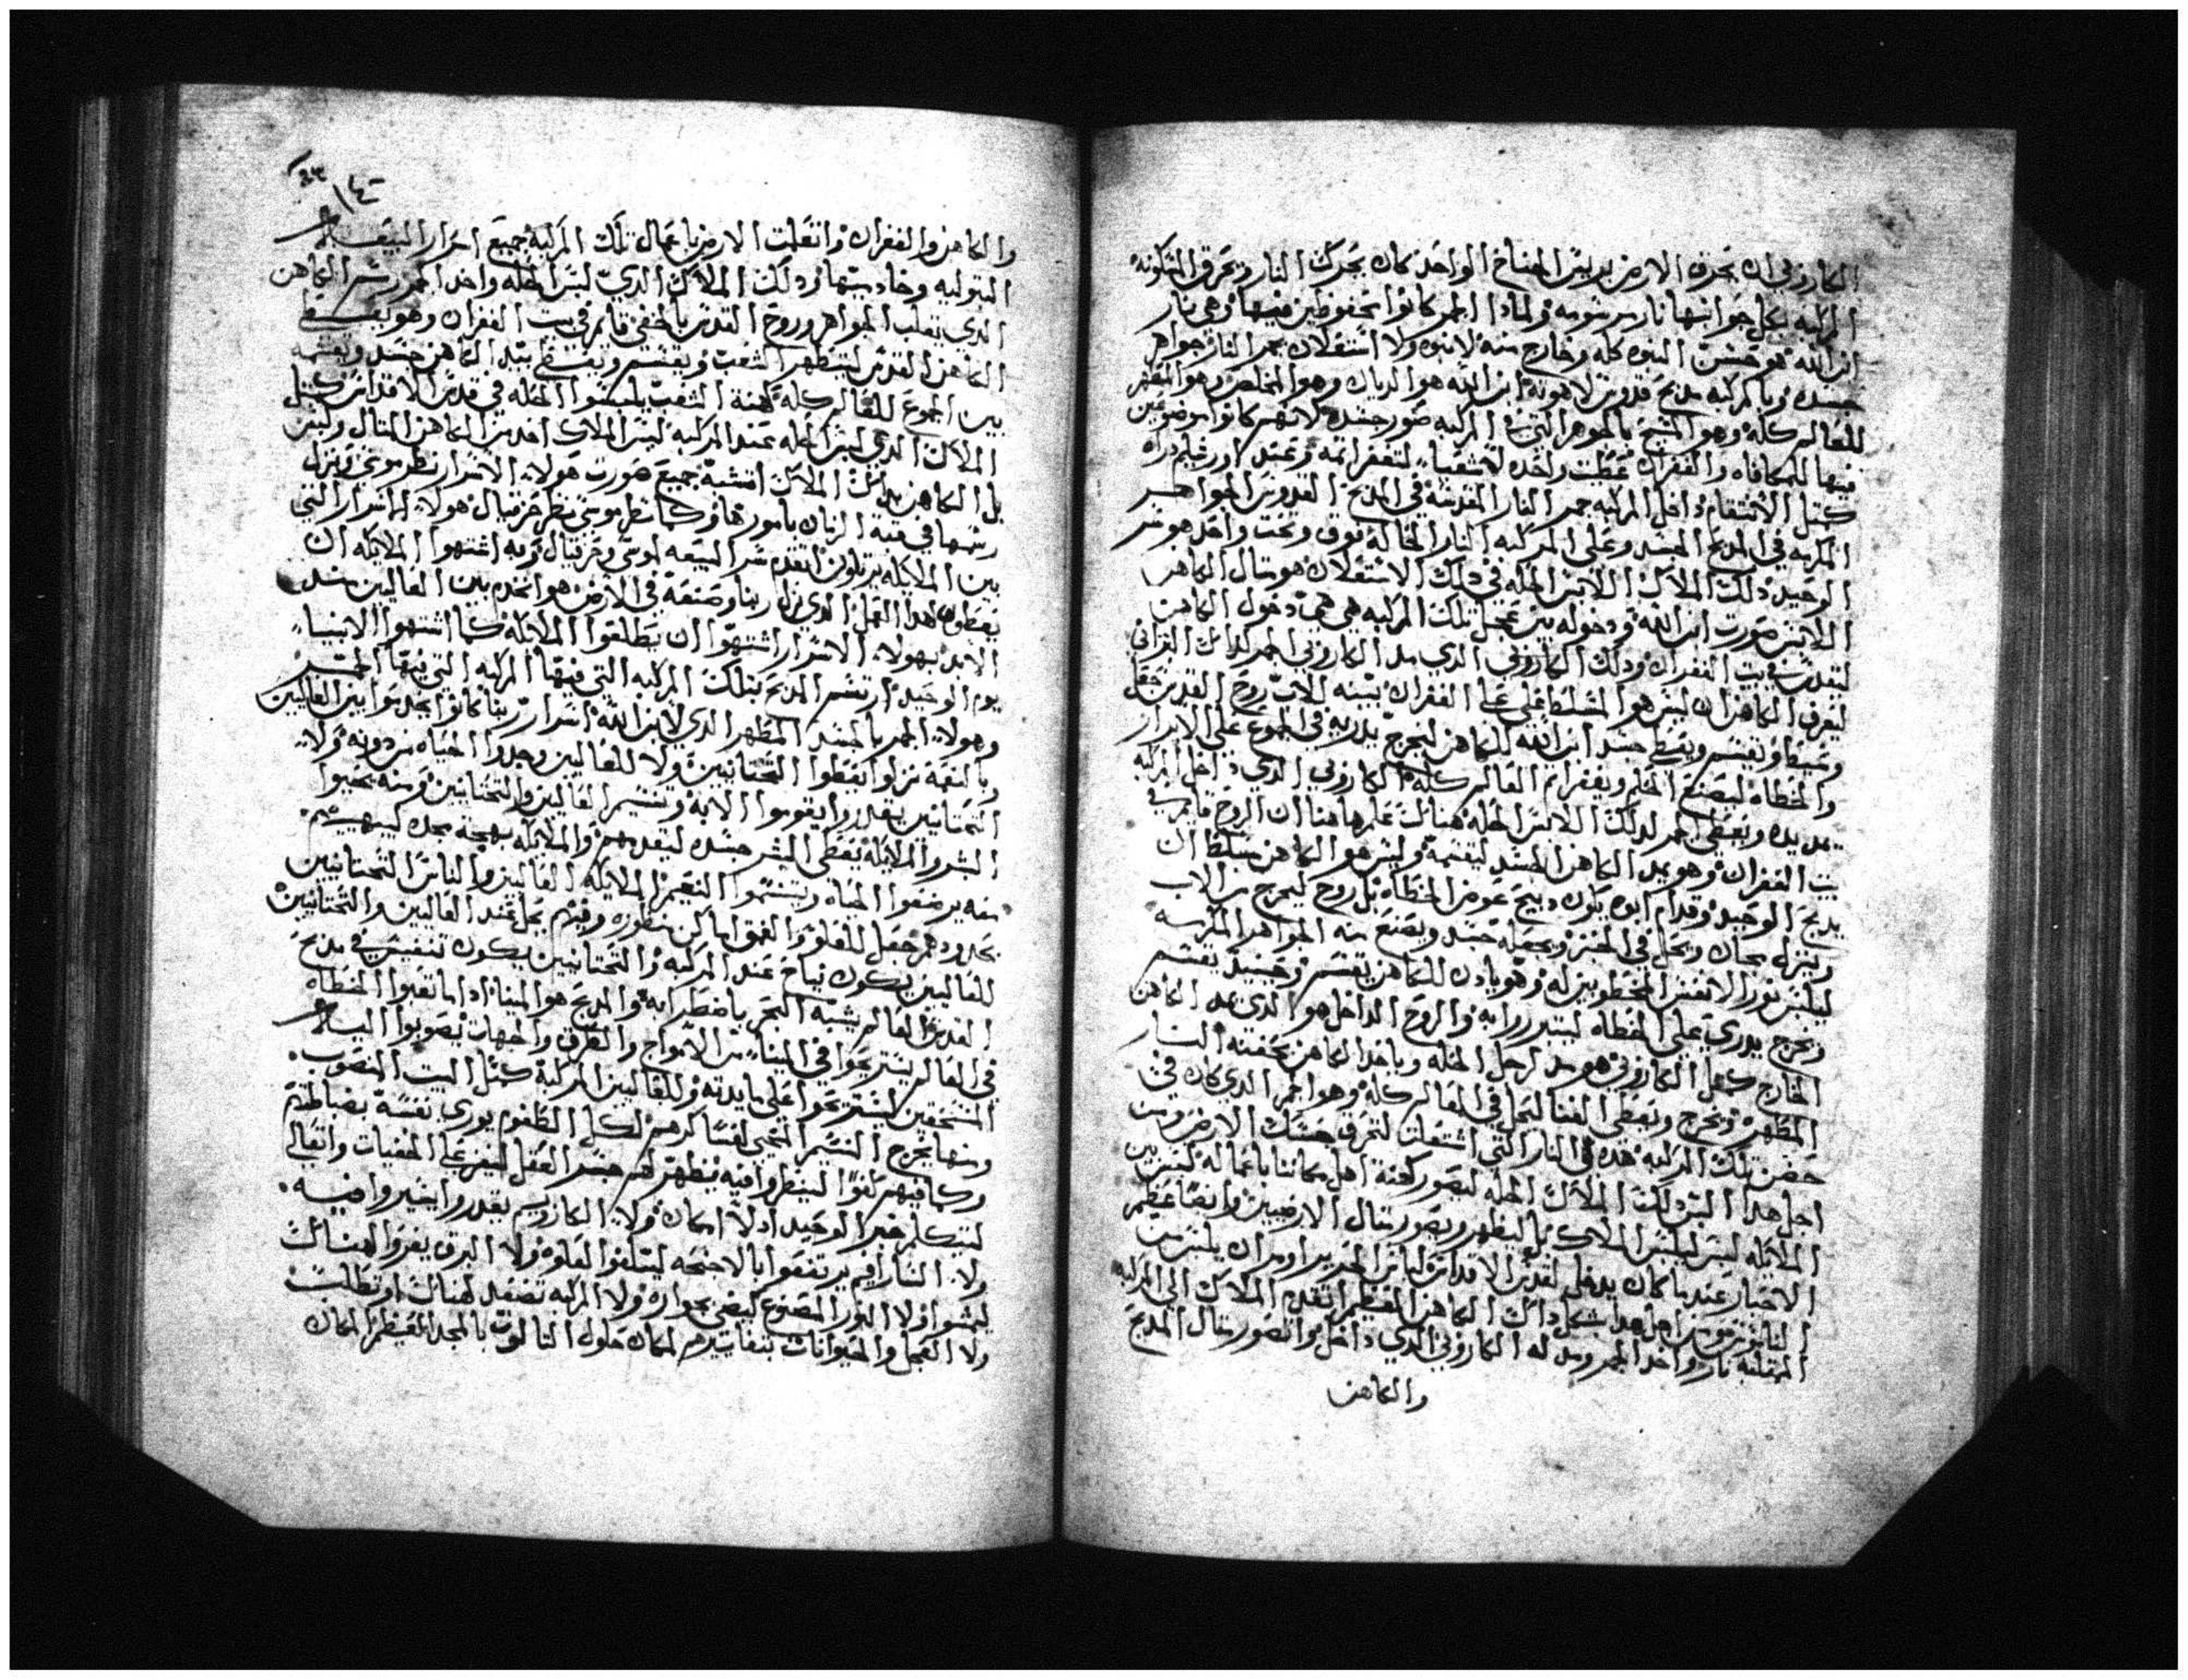 الكاروبي ان تحرق الارض بريش الجناح الواحد كان يحرك النار وتحرق المسكونه
المركبه بكل جوانبها نار مرشومه ولماذا الجمر كانوا محفوظين فيها وهي نار
ابن الله هو حضن البنوه كله وخارج منه لا بنوه ولا اشتعلان جمر النار جواهر
جسده وبالمركبه مذبح قدوس لاهوته ابن الله هو الديان وهو المخلص وهو المطهر
للعالم كله وهو المسبح بالجوهر التي في المركبه صور جسده لانهم كانوا موضوعين
فيها للمكافاه والغفران عطت واحده لاشعياء لتغفر اثمه وعند اورشليم دراه
كمثل الانتقام داخل المركبه جمر النار المقدسه في المذبح القدوس الجواهر
المكرمه في المذبح الجسد وعلى المركبه النار الخاله فوق وتحت واحد هو سر
الوحيد ذلك الملاك اللابس الحله في ذلك الاشتعلان هو مثال الكاهن
اللابس صورت ابن الله ودخوله بين عجل تلك المركبه هي هي دخول الكاهن
لقدس بيت الغفران وذلك الكاروبي الذي مد الكاروبي الجمر لذلك النوراني
ليعرف الكاهن ان ليس هو المسلط على الغفران بيمينه الاب روح القدس جعل
وعيط وتقسم ويعطي جسد ابن الله للكاهن ليخرج يدريه في الجموع على الابرار
والخطاه ليصنع الحلم ويغفر اثم العالم كله الكاروبي الذي داخل المركبه
يمد يده ويعطي الجمر لذلك اللابس الحله هنالك علم هاهنا ان الروح قايم في
بيت الغفران وهو يمد الكاهن الجسد ليقسمه وليس هو الكاهن مسلط ان
يذبح الوحيد وقدام ابوه يكون ذبيح عوض الخطاه بل روح ليخرج من الاب
وينزل بحان ويحل في الخبز ويجعله جسد ويصنع منه الجواهر المكرمه
ليلبس نور الانفس المخطوبين له وهو يادن للكاهن يقسم وحينيد يقسم
ويخرج يدري على الخطاه ليتبررا به والروح الداخل هو الذي يمد الكاهن
الخارج كمثل الكاروبي هو مد لرجل الحله وياخد الكاهن بحفنه النار
المطهره ويخرج ويعطي الفنا ليحل في العالم كله وهوا جمر الذي كان في
حضن تلك المركبه هده هي النار التي اشتعلت لتحرق حسك الارض ومن
اجل هدا السر ذلك الملاك الحله ليصور كهنة اهل مكاننا باعماله ليس بين
الملايكه لبس ليلبس الملاك بل ليظهر ويصور مثال الارضيين وايضا عظم
الاحبار عندما كان يدخل لقدس الاقداس لباس الحرير اومر ان يلبس من
الناموس ومن اجل هدا بشكل ذاك الكاهن العظيم اتقدم الملاك الى المركبه
الممتليه نار واخد الجمر ومد له الكاروبي الذي داخل واتصور مثال المذبح
والكاهن
١٤٢
والكاهن والغفران واتعلمت الارض باعمال تلك المركبه جميع اسرار البيعه
البتوليه وخادميتها وذلك الملاك الذي لبس الحله واخد الجمر رسم الكاهن
الذي تقلب الجواهر وروح القدس بالحقي قايم في بيت الغفران وهو يعطي
الكاهن القدس ليتطهر الشعب ويقسم ويعطي بيد الكاهن جسد ويقسمه
بين الجموع للعالم كله كهنة الشعب يلبسوا الحله في قدس الاقداس كمثل
الملاك الذي لبس الحله عند المركبه ليس الملاك اخد من الكاهن المثال ولبس
بل الكاهن بذلك الملاك اتشبه جميع صورت هولاء الاسرار نظر موسى ونزل
رسمها في قبة الزمان بامورها وكما نظر موسى نظر حزقيال هولاء الاسرار التي
بين الملايكه يرتلون اتقدم سر البيعه لموسى وحزقيال وبه اشتهوا الملايكه ان
يعطون هدا العمل الذي نزل ربنا وصنعه في الارض هو اتخدم بين العاليين مند
الابد بهولاء الاسرار اشتهوا ان يتطلعوا الملايكه كما اشتهوا الانبياء
يوم الوحيد ارتسم المذبح بتلك المركبه التي فيها المركبه التي فيها الجمر
وهولاء الجمر بالجسد المطهر الذي لابن الله اسرار ربنا كانوا يخدموا بين العاليين
وبالنعمه نزلوا اتعطوا التحتانيين ولا للعاليين وجدوا الحياه من دونه ولا
التحتانيين يقدروا يقوموا الا به وتسير العاليين والتحتانيين ومنه يحيوا
البشر والملايكه يعطي البشر جسده ليقدسهم والملايكه بهجة مجده ليبهجهم
منه يرضعوا الحياه ويتنسموا النعيم الملايكه العاليين والناس التحتانيين
بحدودهم جعل للعلو والعمق اماكن منظوره وفيهم يحل عند العاليين والتحتانيين
للعاليين يكون نياح عند المركبه والتحتانيين يكون تنفيس في مذبح
القدس العالم يشبه البحر باضطرابه والمذبح هو المينا اذا ما تعبوا الخطاه
في العالم يستريحوا في الميناء من الامواج والغرق والجهات يصوبوا اليه
المستحقين ليستريحوا على مايدته وللعاليين المركبه كمثل البيت المنصوب
ومنها يخرج النسيم المحيي لعساكرهم لكل الطغوم يوري نفسه بضباطتهم
وكما فيهم كفوا لينظروا فيه يظهر لهم جسر العقل ليفر على الخفيات واتعالي
ليتكلم خبر الوحيد اد لا امكان ولا الكاروبيم يقدروا يبتدروا فيه
ولا السارافيم يرتفعوا بالاجنحه ليتلقوا العلوه ولا البرق يفروا لهنالك
ليمشوا ولا النور المصنوع ليضي بجواره ولا المركبه تصعد لهنالك او تطلب
ولا العجل والحيوانات بتقاتيدهم لمكان حلول الثالوت بالمجد العظيم المكان